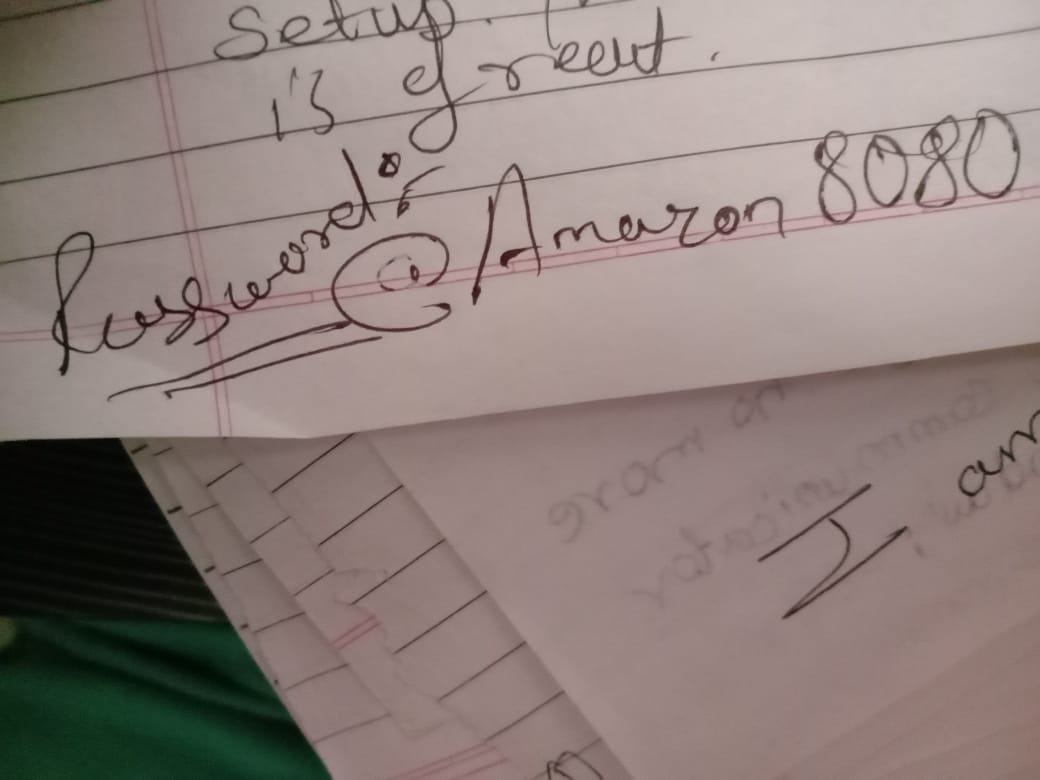 Setup.
is great.
Password:- @Amazon 8080
I am